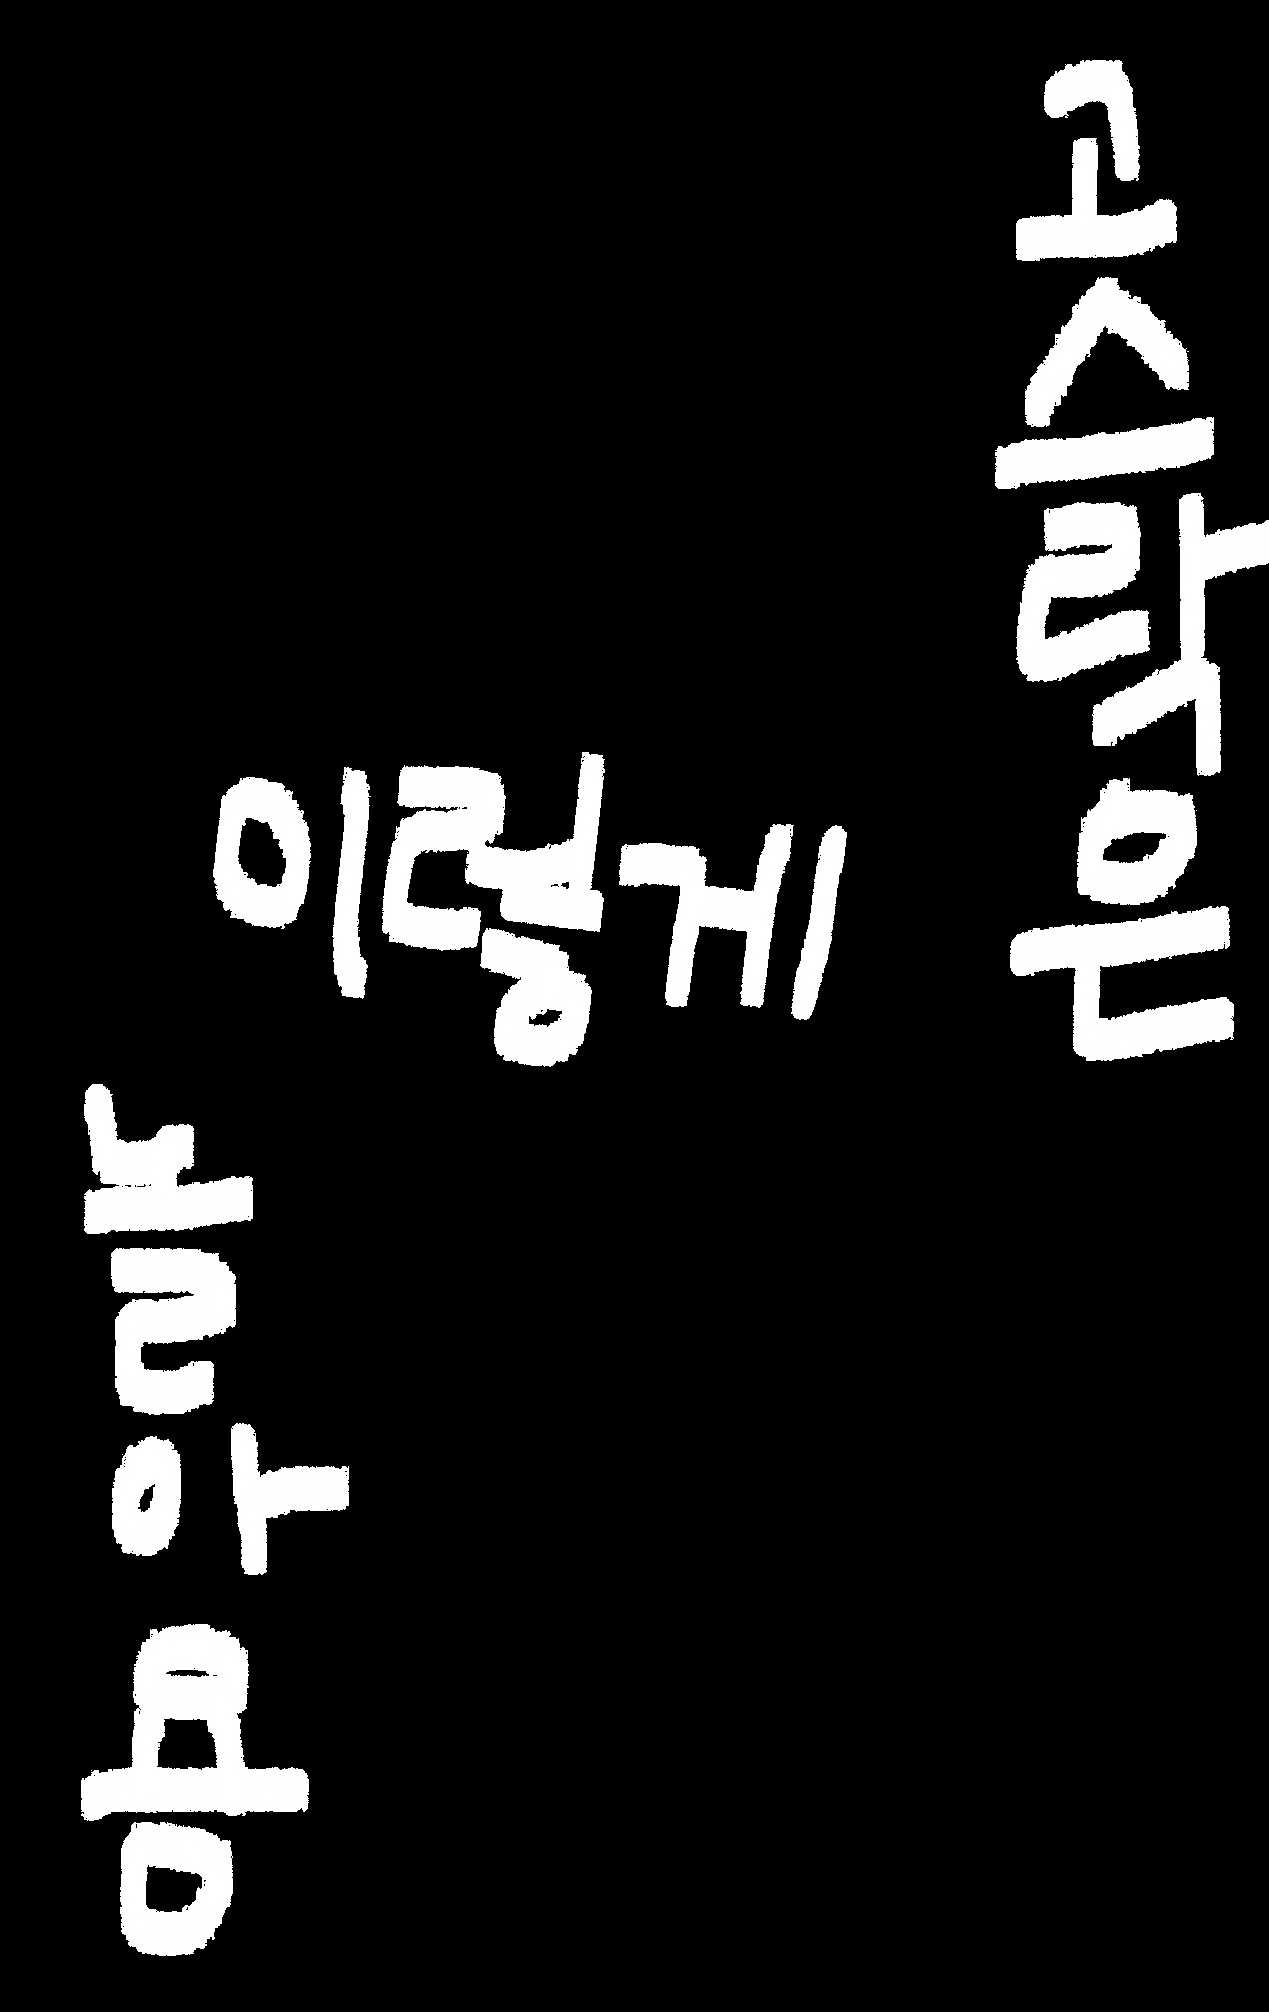 고스락은
이렇게
놀아용